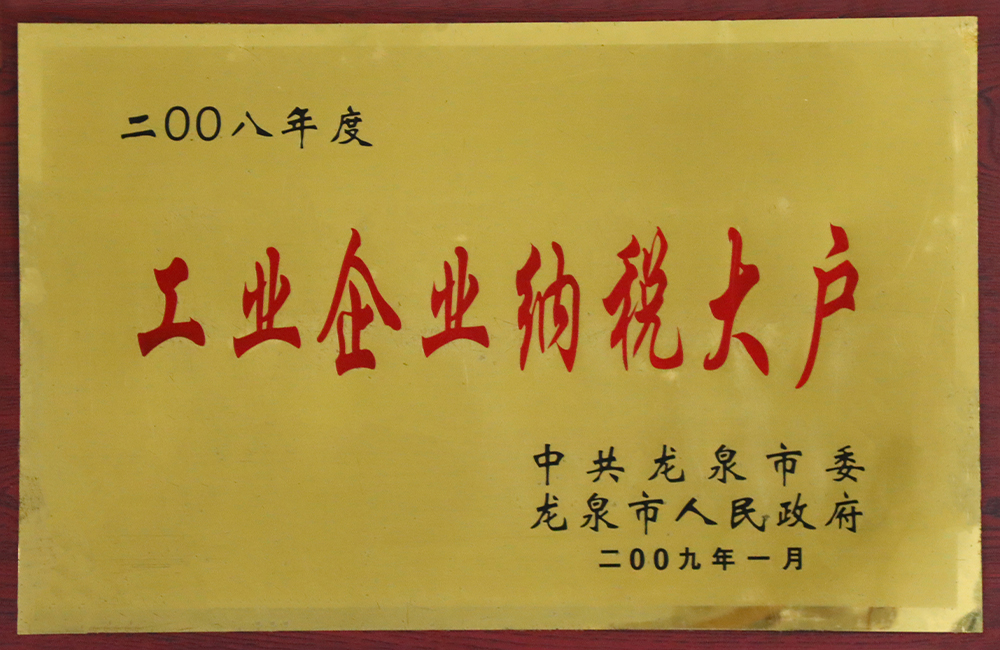 二〇〇八年度
工业企业纳税大户
中共龙泉市委
龙泉市人民政府
二〇〇九年一月